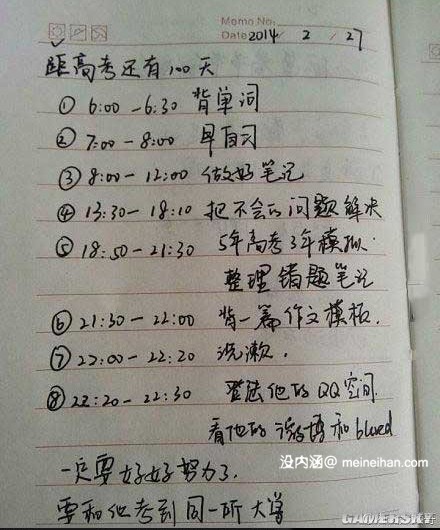 Memo No.
Date 2014 / 2 / 27
距高考还有100天
① 6:00 - 6:30 背单词
② 7:00 - 8:00 早自习
③ 8:00 - 12:00 做好笔记
④ 13:30 - 18:10 把不会的问题解决
⑤ 18:50 - 21:30 5年高考3年模拟.
整理错题笔记
⑥ 21:30 - 22:00 背一篇作文模板.
⑦ 22:00 - 22:20 洗漱.
⑧ 22:20 - 22:30 登陆他的QQ空间
看他的微博和blued
一定要好好努力了.
没内涵@meineihan.com
要和他考到同一所大学
GAMERSKY